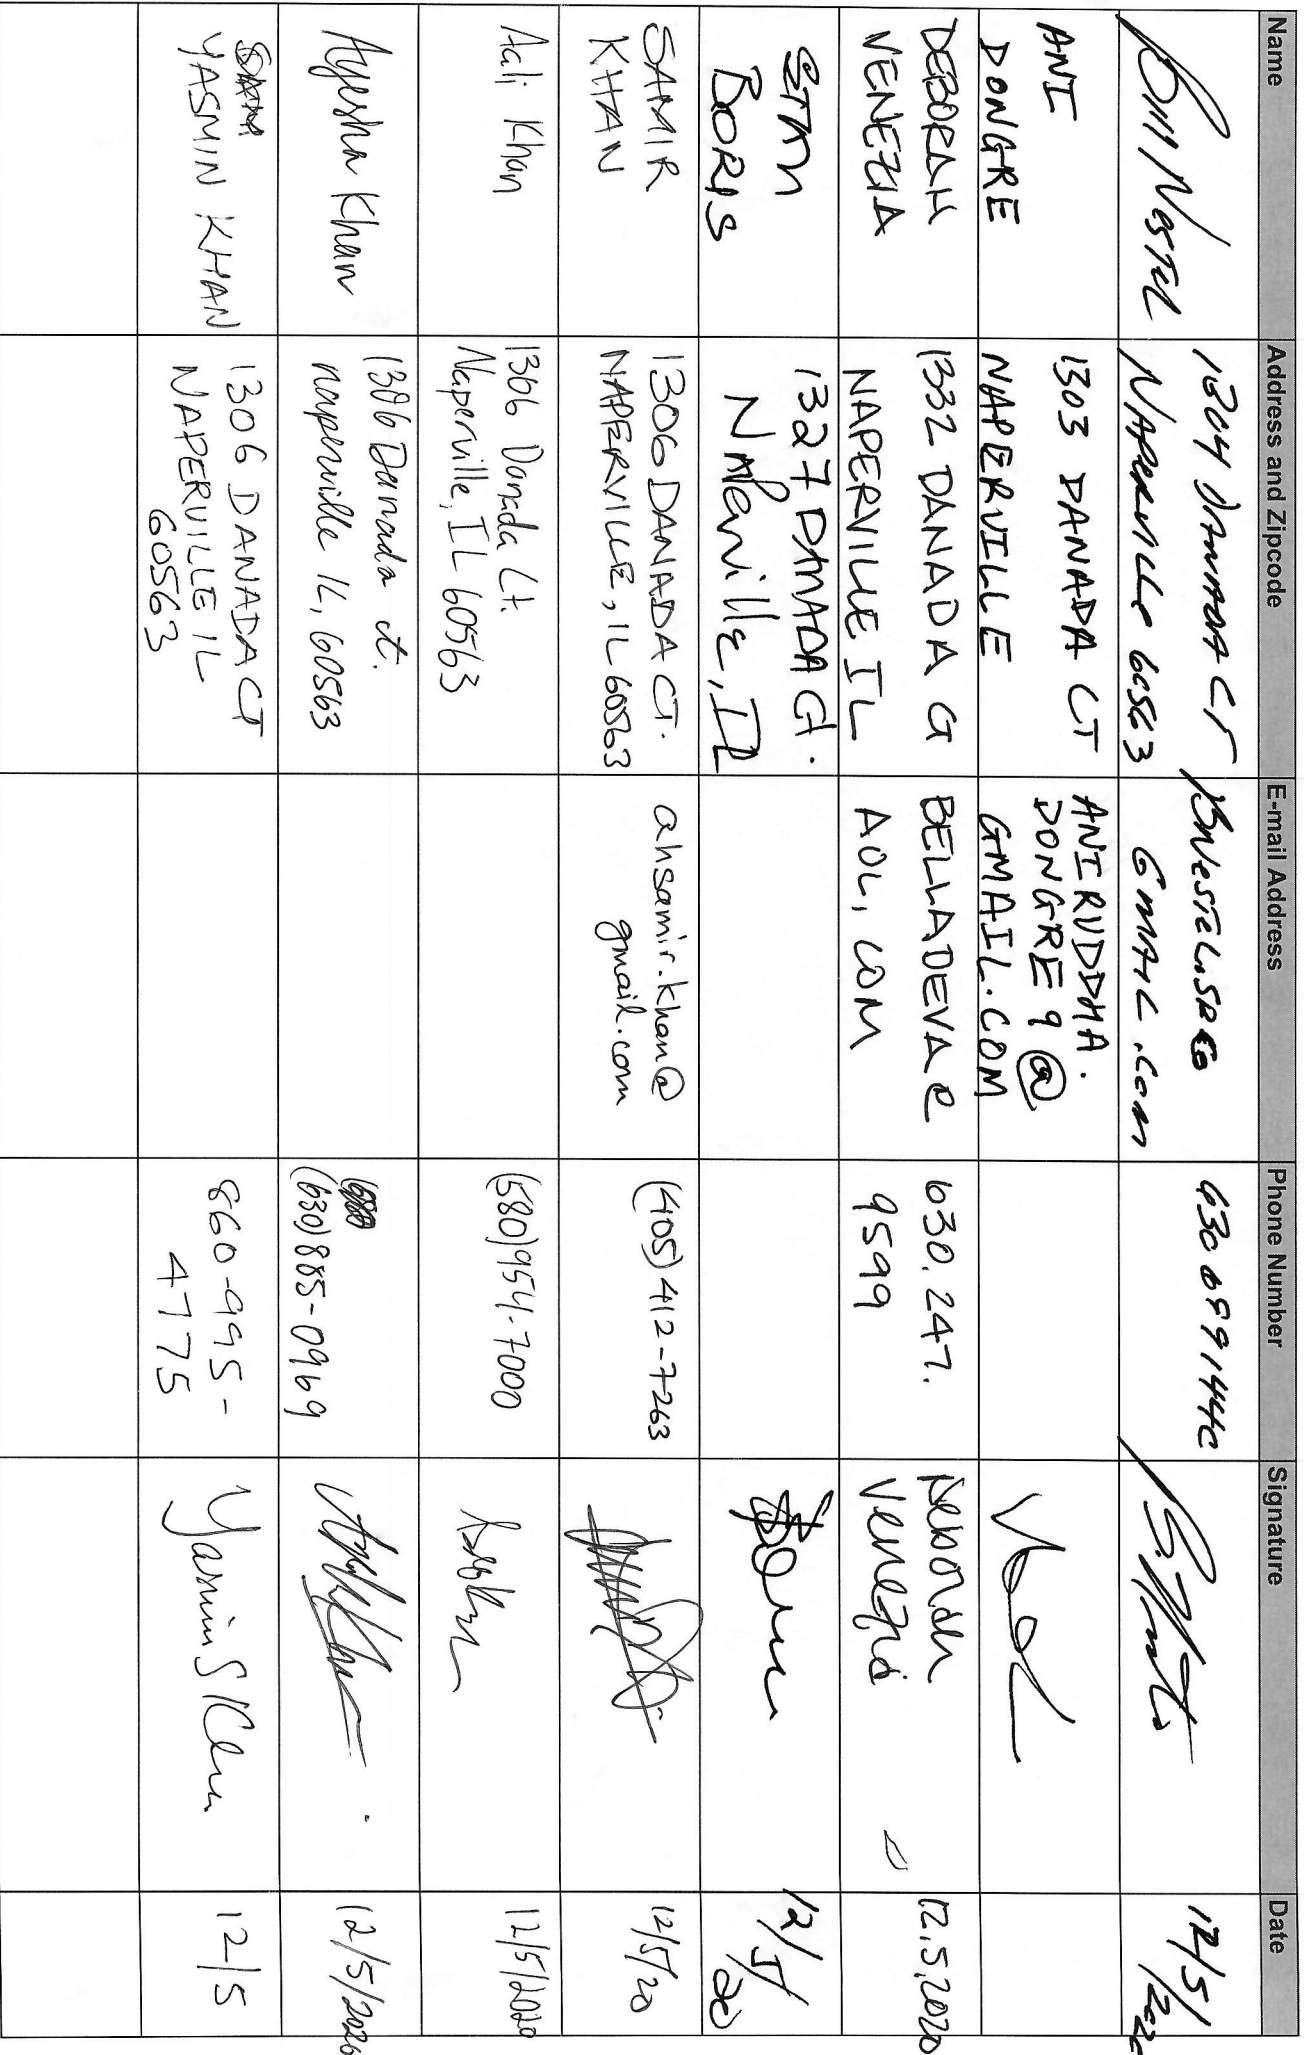 Name
Address and Zipcode
E-mail Address
Phone Number
Signature
Date
Bill Nestel
1304 DANADA CT
NAPERVILLE 60563
BNESTEL.SR@
GMAIL.COM
12/5/
2020
ANI
DONGRE
1303 DANADA CT
NAPERVILLE
ANIRUDDHA.
DONGRE9@
GMAIL.COM
DEBORAH
VENEZIA
1332 DANADA Ct
NAPERVILLE IL
BELLADEVA@
AOL.COM
630.247.
9599
Deborah
Venezia
12.5.2020
STAN
BORIS
1327 DANADA Ct.
Naperville, IL
12/5/
20
SAMIR
KHAN
1306 DANADA CT.
NAPERVILLE, IL 60563
ahsamir.khan@
gmail.com
(405) 412-7263
12/5/20
Aali Khan
1306 Danada Ct.
Naperville, IL 60563
(580)954-7000
12/5/2020
Ayesha Khan
1306 Danada ct.
naperville IL, 60563
(630)885-0969
12/5/2020
YASMIN KHAN
1306 DANADA CT
NAPERVILLE IL
60563
860-995-
4775
Yasmin S Khan
12/5